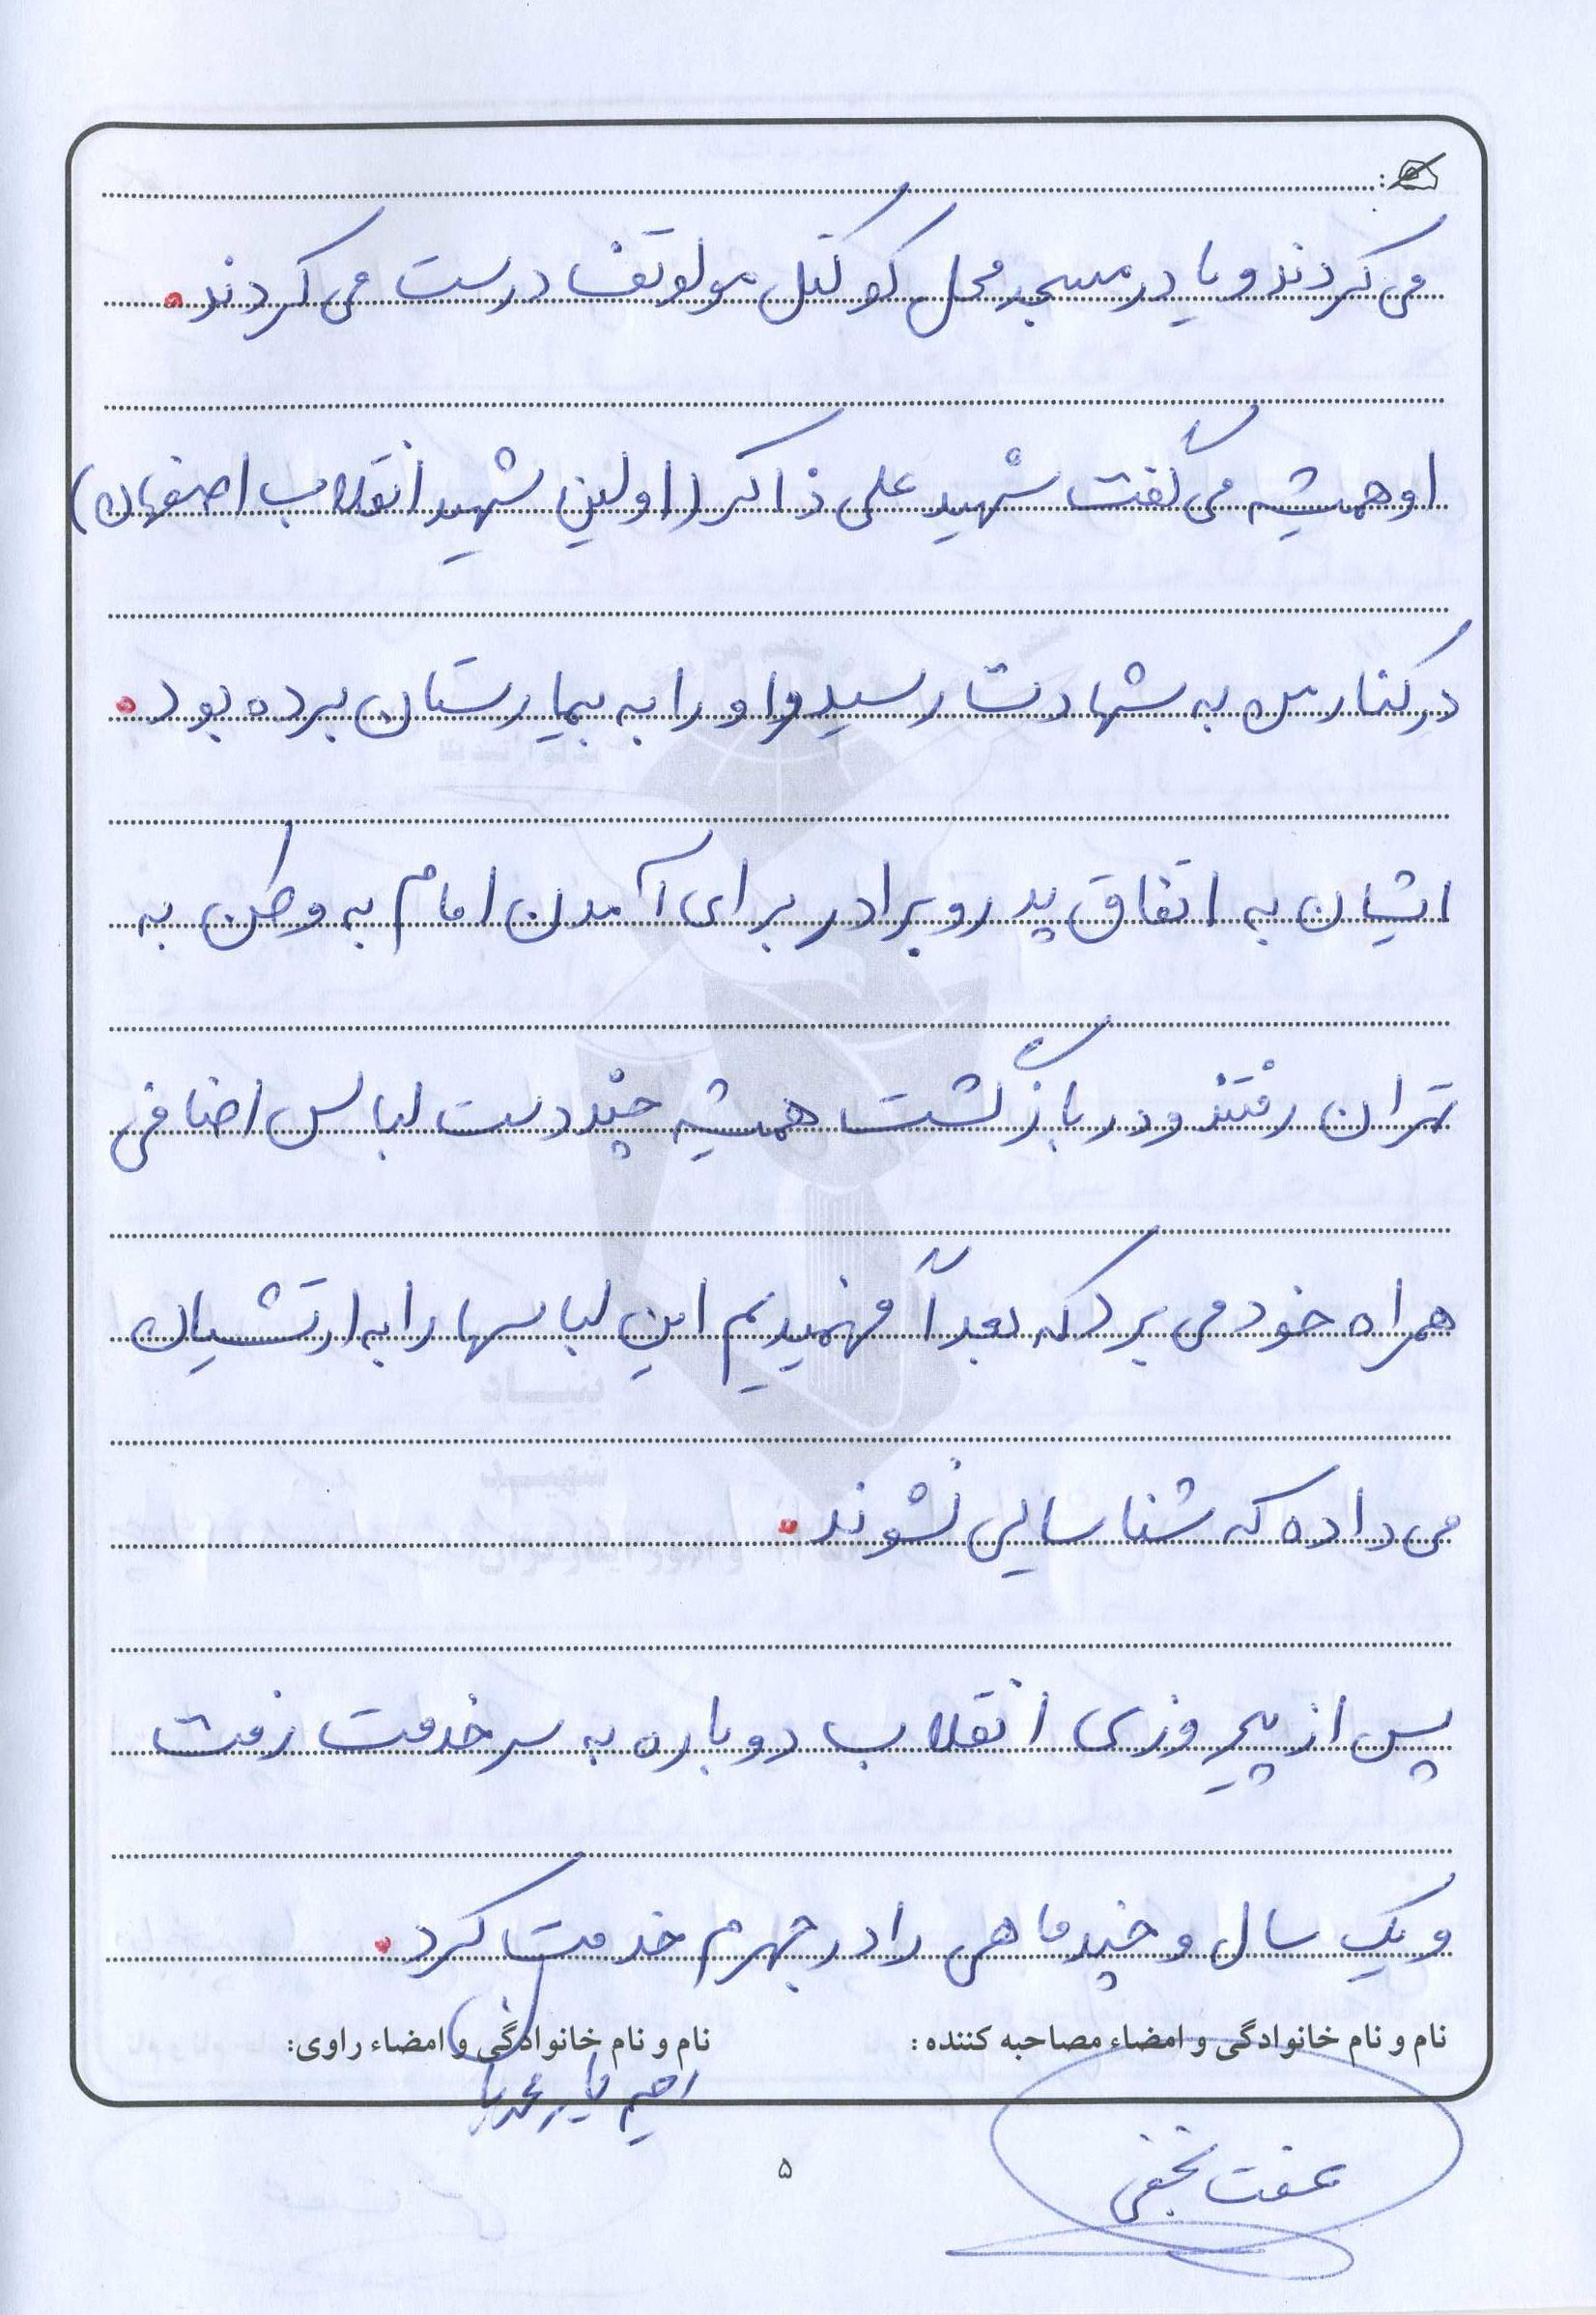 می کردند و یا در مسجد محل کوکتل مولوتف درست می کردند.
او همیشه می گفت شهید علی ذاکر (اولین شهید انقلاب اصفهان)
در کنارش به شهادت رسید و او را به بیمارستان برده بود.
ایشان به اتفاق پدر و برادر برای آمدن امام به وطن به
تهران رفتند و در بازگشت همیشه چند دست لباس اضافی
همراه خود می برد که بعداً فهمیدیم این لباسها را به ارتشیان
می داده که شناسایی نشوند.
پس از پیروزی انقلاب دوباره به سر خدمت رفت
و یک سال و چند ماهی را در جهرم خدمت کرد.
نام و نام خانوادگی و امضاء مصاحبه کننده :
نام و نام خانوادگی و امضاء راوی:
عفت نجفی
۵